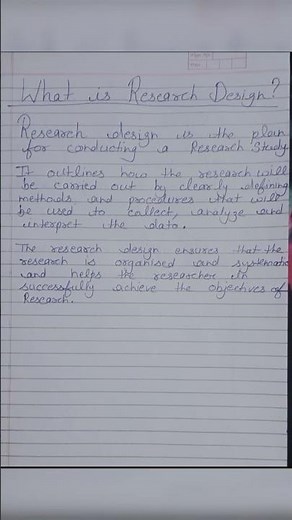 What is Research Design?
Research design is the plan
for conducting a Research Study.
It outlines how the research will
be carried out by clearly defining
methods and procedures that will
be used to collect, analyze and
interpret the data.
The research design ensures that the
research is organised and systematic
and helps the researcher to
successfully achieve the objectives of
Research.